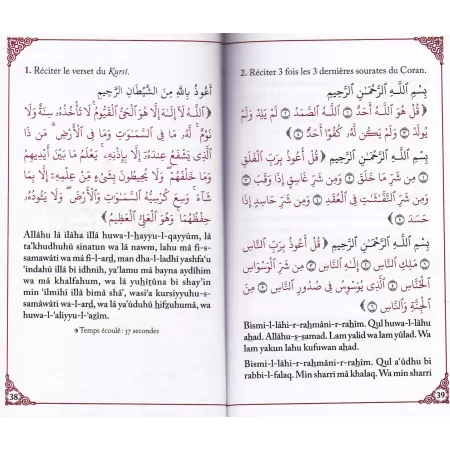 1. Réciter le verset du Kursî.
أَعُوذُ بِاللَّهِ مِنَ الشَّيْطَانِ الرَّجِيمِ
﴿اللَّهُ لَا إِلَٰهَ إِلَّا هُوَ الْحَيُّ الْقَيُّومُ لَا تَأْخُذُهُ سِنَةٌ وَلَا
نَوْمٌ لَهُ مَا فِي السَّمَاوَاتِ وَمَا فِي الْأَرْضِ مَن ذَا
الَّذِي يَشْفَعُ عِندَهُ إِلَّا بِإِذْنِهِ يَعْلَمُ مَا بَيْنَ أَيْدِيهِمْ
وَمَا خَلْفَهُمْ وَلَا يُحِيطُونَ بِشَيْءٍ مِّنْ عِلْمِهِ إِلَّا بِمَا
شَاءَ وَسِعَ كُرْسِيُّهُ السَّمَاوَاتِ وَالْأَرْضَ وَلَا يَئُودُهُ
حِفْظُهُمَا وَهُوَ الْعَلِيُّ الْعَظِيمُ﴾
Allâhu lâ ilâha illâ huwa-l-ḥayyu-l-qayyûm, lâ
ta'khudhuhû sinatun wa lâ nawm, lahu mâ fi-s-
samawâti wa mâ fi-l-arḍ, man dha-l-ladhî yashfa'u
'indahû illâ bi idhnih, ya'lamu mâ bayna aydîhim
wa mâ khalfahum, wa lâ yuḥîṭûna bi shay'in
min 'ilmihî illâ bimâ shâ', wasi'a kursiyyuhu-s-
samâwâti wa-l-arḍ, wa lâ ya'ûduhû ḥifẓuhumâ, wa
huwa-l-'aliyyu-l-'aẓîm.
Temps écoulé : 37 secondes
38
2. Réciter 3 fois les 3 dernières sourates du Coran.
بِسْمِ اللَّهِ الرَّحْمَٰنِ الرَّحِيمِ
﴿قُلْ هُوَ اللَّهُ أَحَدٌ ۝ اللَّهُ الصَّمَدُ ۝ لَمْ يَلِدْ وَلَمْ
يُولَدْ ۝ وَلَمْ يَكُن لَّهُ كُفُوًا أَحَدٌ﴾
بِسْمِ اللَّهِ الرَّحْمَٰنِ الرَّحِيمِ ﴿قُلْ أَعُوذُ بِرَبِّ الْفَلَقِ
۝ مِن شَرِّ مَا خَلَقَ ۝ وَمِن شَرِّ غَاسِقٍ إِذَا وَقَبَ ۝
وَمِن شَرِّ النَّفَّاثَاتِ فِي الْعُقَدِ ۝ وَمِن شَرِّ حَاسِدٍ إِذَا
حَسَدَ﴾
بِسْمِ اللَّهِ الرَّحْمَٰنِ الرَّحِيمِ ﴿قُلْ أَعُوذُ بِرَبِّ النَّاسِ
۝ مَلِكِ النَّاسِ ۝ إِلَٰهِ النَّاسِ ۝ مِن شَرِّ الْوَسْوَاسِ
الْخَنَّاسِ ۝ الَّذِي يُوَسْوِسُ فِي صُدُورِ النَّاسِ ۝ مِنَ
الْجِنَّةِ وَالنَّاسِ﴾
Bismi-l-lâhi-r-raḥmâni-r-raḥîm. Qul huwa-l-lâhu
aḥad. Allâhu-ṣ-ṣamad. Lam yalid wa lam yûlad. Wa
lam yakun lahu kufuwan aḥad.
Bismi-l-lâhi-r-raḥmâni-r-raḥîm. Qul a'ûdhu bi
rabbi-l-falaq. Min sharri mâ khalaq. Wa min sharri
39